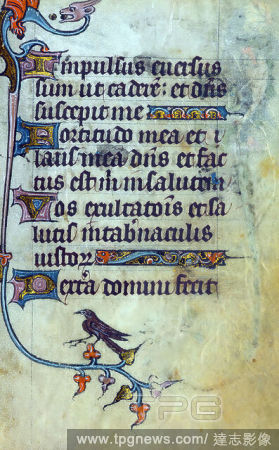 Impulsus euersus
sum ut caderē: et dn̄s
suscepit me
Fortitudo mea et
laus mea dn̄s et fac
tus est m̄ in salutem
Uox exultatōis et sa
lutis in tab'naculis
iustoꝝ
Dextā domini fecit
PG
www.tpgnews.com/ 達志影像